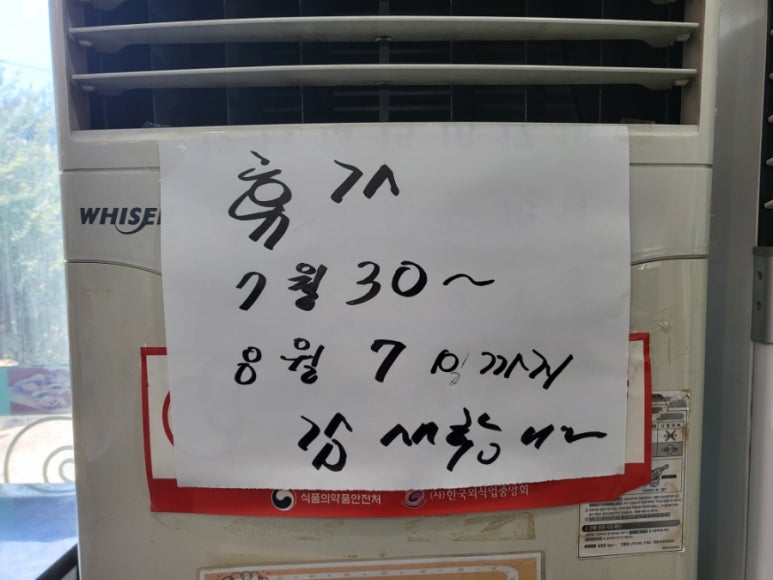 휴가
WHISE
7월 30~
8월 7일까지
감사합니다
식품의약품안전처 (사)한국외식업중앙회